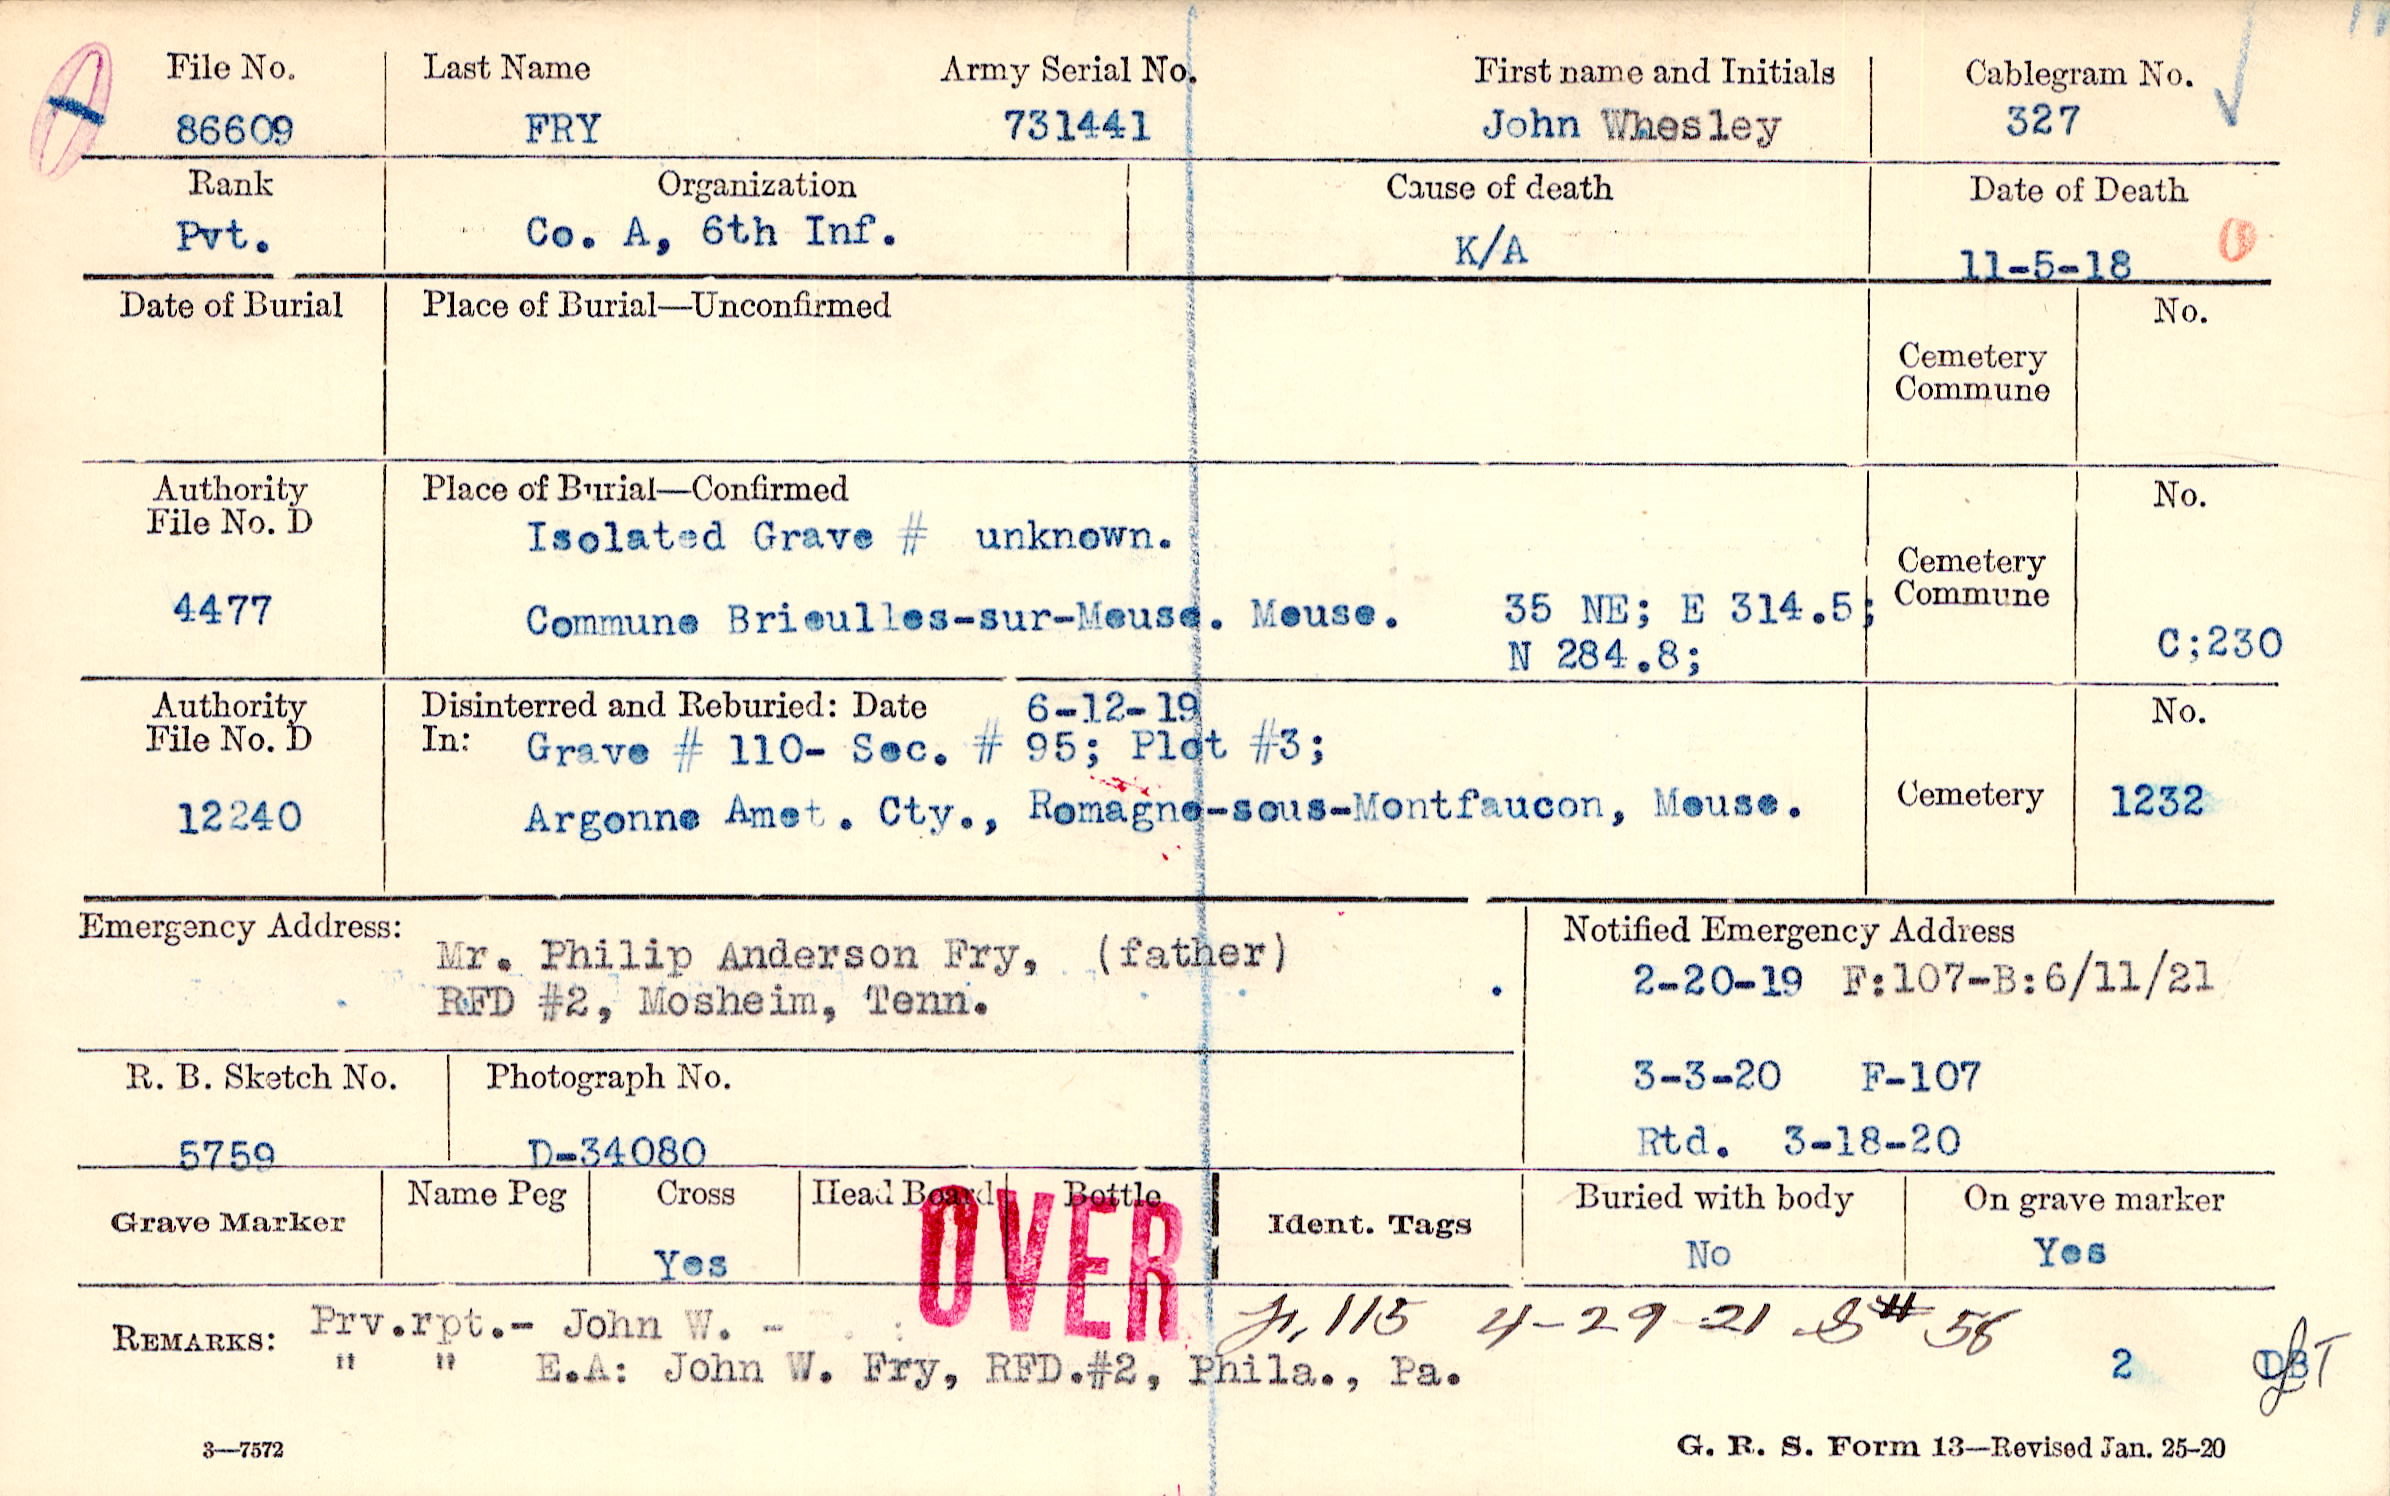 File No. Last Name Army Serial No. First name and Initials Cablegram No.
86609 FRY 731441 John Whesley 327
Rank Organization Cause of death Date of Death
Pvt. Co. A, 6th Inf. K/A 11-5-18
Date of Burial Place of Burial—Unconfirmed No.
Cemetery
Commune
Authority Place of Burial—Confirmed No.
File No. D Isolated Grave # unknown.
Cemetery
4477 Commune Brieulles-sur-Meuse. Meuse. 35 NE; E 314.5; Commune
N 284.8; C;230
Authority Disinterred and Reburied: Date 6-12-19 No.
File No. D In: Grave # 110- Sec. # 95; Plot #3;
12240 Argonne Amet. Cty., Romagne-sous-Montfaucon, Meuse. Cemetery 1232
Emergency Address: Notified Emergency Address
Mr. Philip Anderson Fry, (father) 2-20-19 F:107-B:6/11/21
RFD #2, Mosheim, Tenn.
R. B. Sketch No. Photograph No. 3-3-20 F-107
5759 D-34080 Rtd. 3-18-20
Grave Marker Name Peg Cross Head Board Bottle Ident. Tags Buried with body On grave marker
Yes No Yes
OVER
REMARKS: Prv.rpt.- John W. - 115 4-29-21 S# 58
" " E.A: John W. Fry, RFD.#2, Phila., Pa. 2 DB
3—7572 G. R. S. Form 13—Revised Jan. 25-20